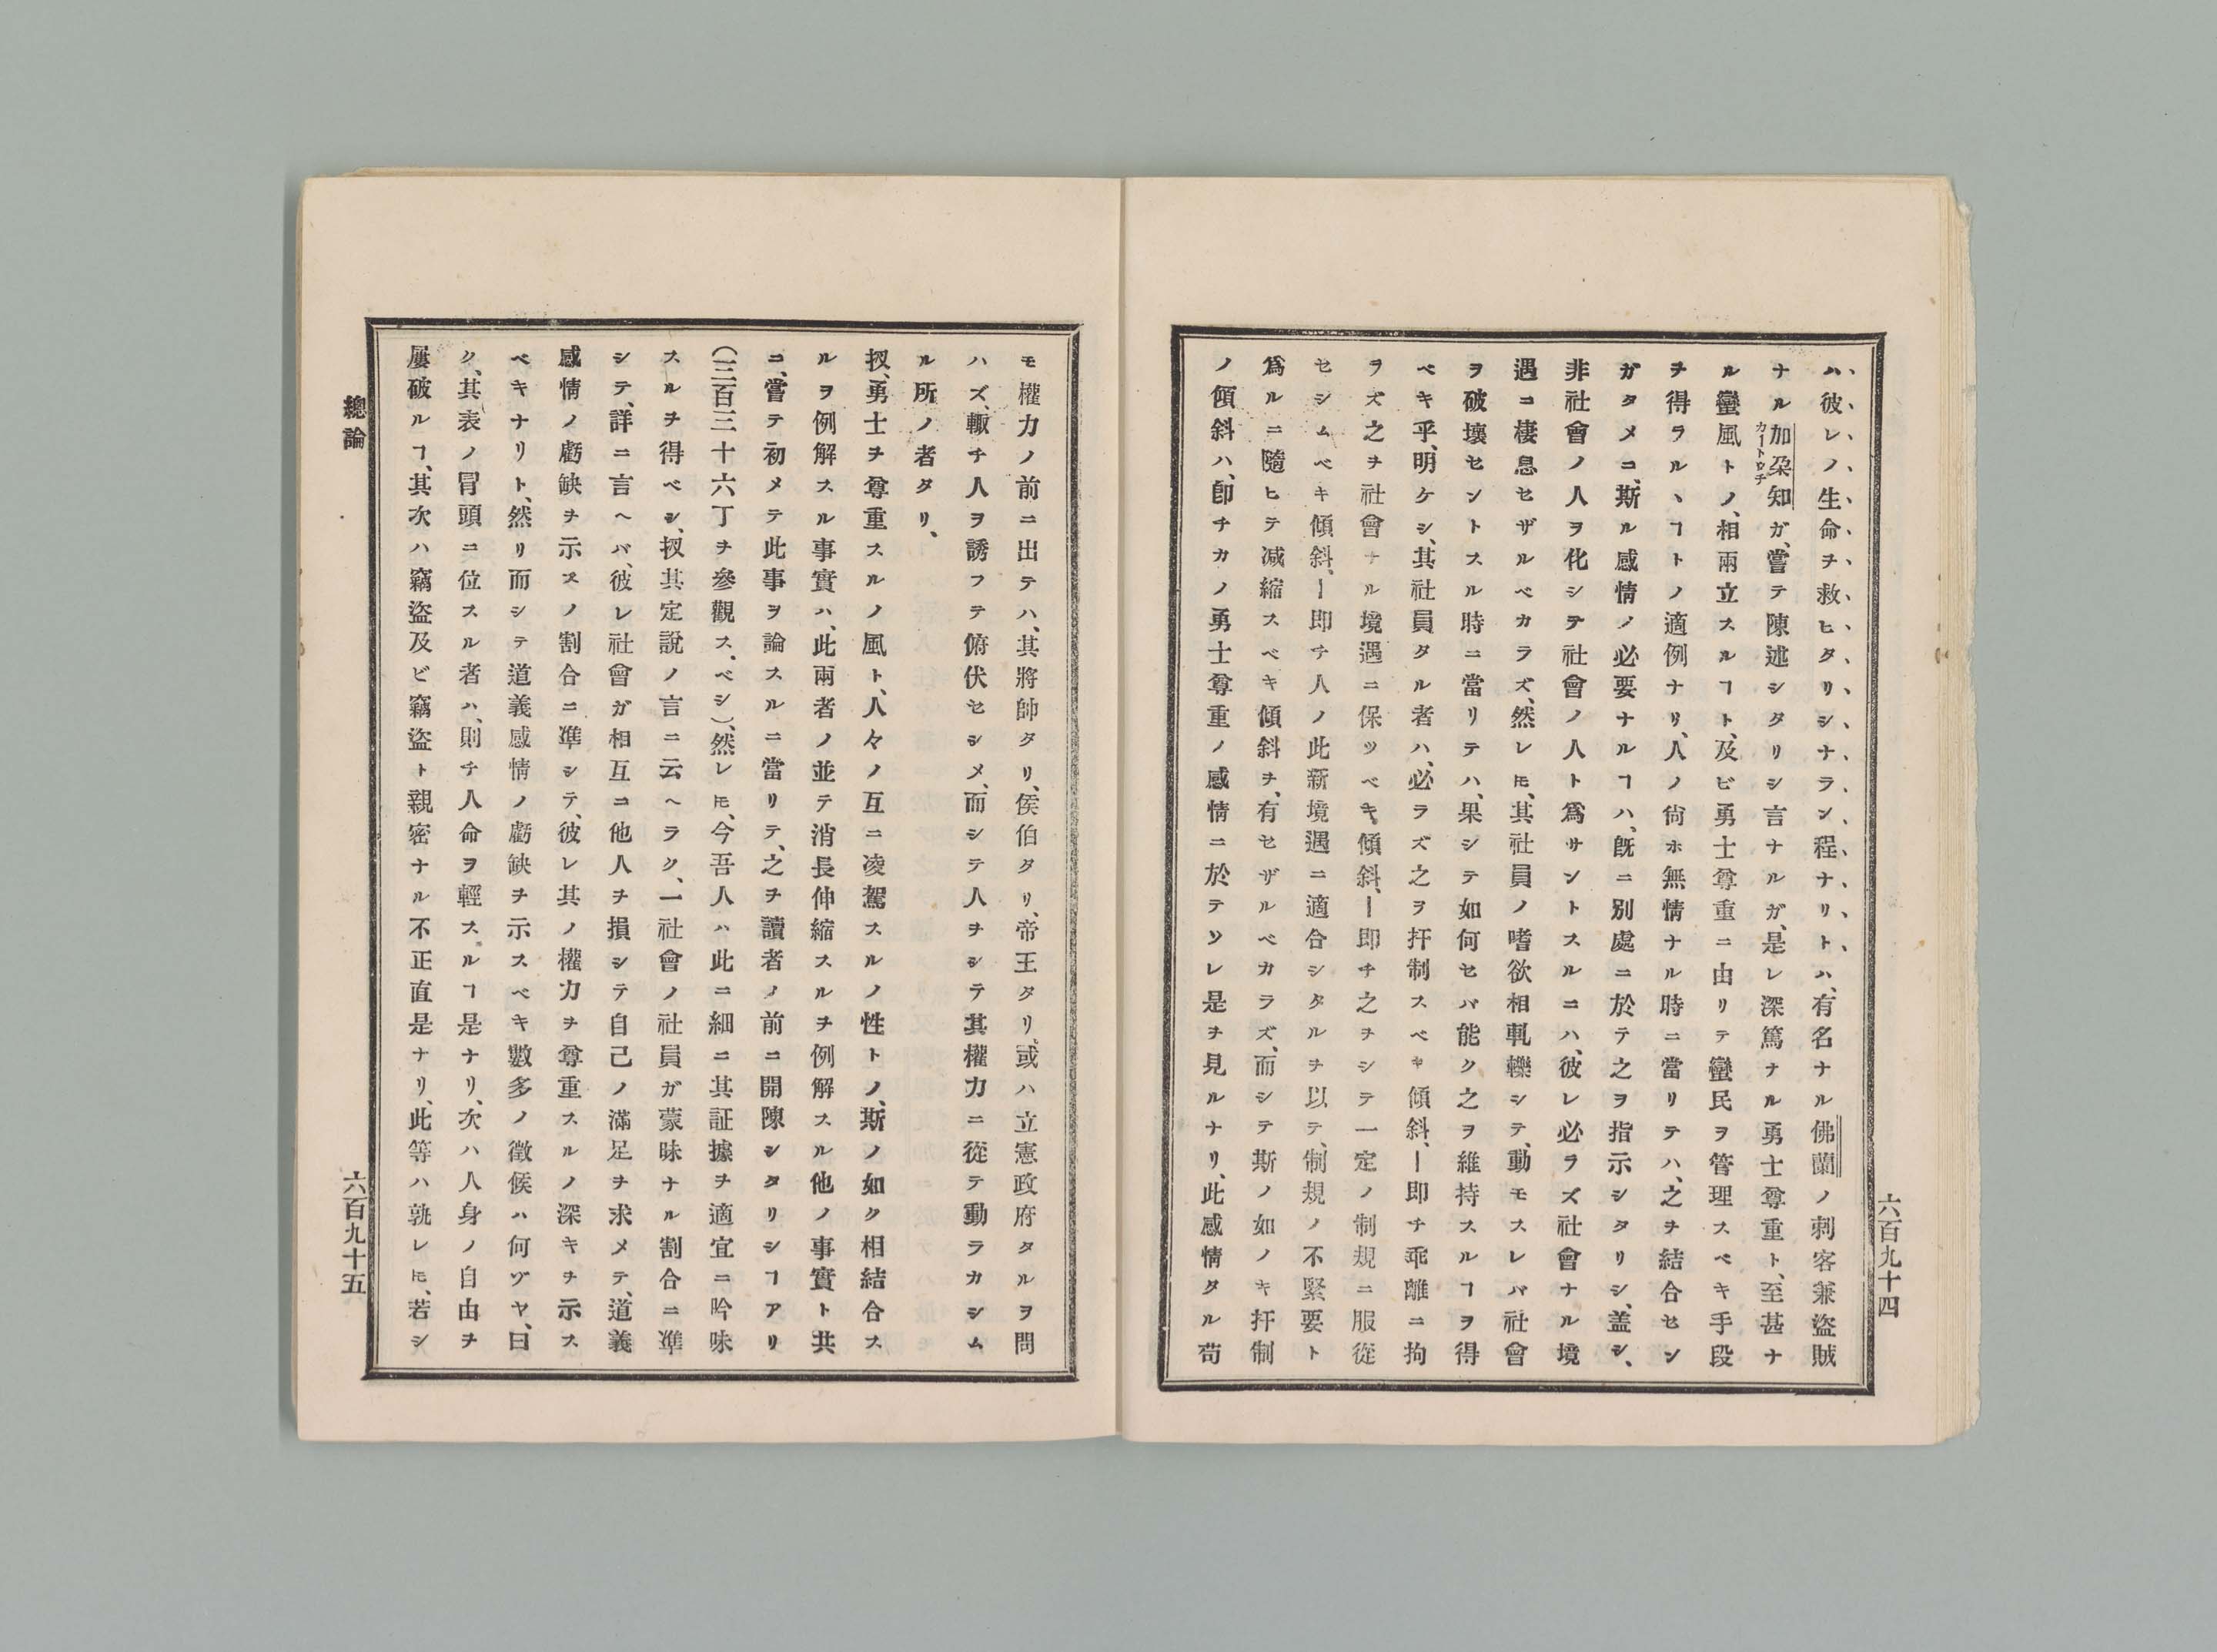 ハ彼レノ生命ヲ救ヒタリシナラン程ナリトハ、有名ナル佛蘭ノ刺客兼盜賊
ナル加朶知ガ、嘗テ陳述シタリシ言ナルガ、是レ深篤ナル勇士尊重ト、至甚ナ
カートロチ
ル蠻風トノ、相兩立スルヿト、及ビ勇士尊重ニ由リテ蠻民ヲ管理スベキ手段
ヲ得ラルヽヿトノ適例ナリ、人ノ尙ホ無情ナル時ニ當リテハ、之ヲ結合セン
ガタメニ、斯ル感情ノ必要ナルヿハ、旣ニ別處ニ於テ之ヲ指示シタリシ、蓋シ、
非社會ノ人ヲ化シテ社會ノ人ト爲サントスルニハ、彼レ必ラズ社會ナル境
遇ニ棲息セザルベカラズ、然レ𪜈、其社員ノ嗜欲相軋轢シテ、動モスレバ社會
ヲ破壞セントスル時ニ當リテハ、果シテ如何セバ能ク之ヲ維持スルヿヲ得
ベキ乎、明ケシ、其社員タル者ハ、必ラズ之ヲ扞制スベキ傾斜、ー即チ乖離ニ拘
ラズ之ヲ社會ナル境遇ニ保ツベキ傾斜、ー即チ之ヲシテ一定ノ制規ニ服從
セシムベキ傾斜、ー即チ人ノ此新境遇ニ適合シタルヲ以テ、制規ノ不緊要ト
爲ルニ隨ヒテ減縮スベキ傾斜ヲ、有セザルベカラズ、而シテ斯ノ如ノキ扞制
ノ傾斜ハ、卽チカノ勇士尊重ノ感情ニ於テソレ是ヲ見ルナリ、此感情タル苟
六百九十四
モ權力ノ前ニ出テハ、其將帥タリ、侯伯タリ、帝王タリ、或ハ立憲政府タルヲ問
ハズ、輙チ人ヲ誘フテ俯伏セシメ、而シテ人ヲシテ其權力ニ從テ動ラカシム
ル所ノ者タリ、
扠、勇士ヲ尊重スルノ風ト、人々ノ互ニ凌駕スルノ性トノ、斯ノ如ク相結合ス
ルヲ例解スル事實ハ、此兩者ノ並テ消長伸縮スルヲ例解スル他ノ事實ト共
ニ、嘗テ初メテ此事ヲ論スルニ當リテ、之ヲ讀者ノ前ニ開陳シタリシヿアリ
(三百三十六丁ヲ參觀ス、ベシ)、然レ𪜈、今吾人ハ此ニ細ニ其証據ヲ適宜ニ吟味
スルヲ得ベシ、扠其定說ノ言ニ云ヘラク、一社會ノ社員ガ蒙昧ナル割合ニ準
シテ、詳ニ言ヘバ、彼レ社會ガ相互ニ他人ヲ損シテ自己ノ滿足ヲ求メテ、道義
感情ノ虧缺ヲ示スノ割合ニ準シテ、彼レ其ノ權力ヲ尊重スルノ深キヲ示ス
ベキナリト、然リ而シテ道義感情ノ虧缺ヲ示スベキ數多ノ徵候ハ何ゾヤ、曰
ク、其表ノ冐頭ニ位スル者ハ、則チ人命ヲ輕スルヿ是ナリ、次ハ人身ノ自由ヲ
屢破ルヿ、其次ハ竊盜及ビ竊盜ト親密ナル不正直是ナリ、此等ハ孰レ𪜈、若シ
總論
六百九十五